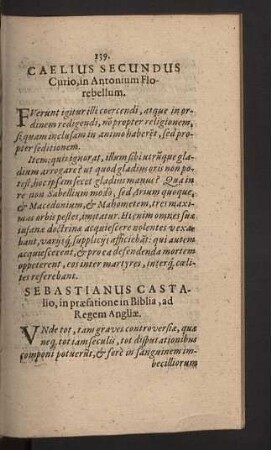 139.
CAELIUS SECUNDUS
Curio, in Antonium Flo-
rebellum.
FVerunt igitur illi coercendi, atque in or-
dinem redigendi, nõ propter religionem,
siquam inclusam in animo haberẽt, sed pro-
pter seditionem.
Item: quis ignorat, illum sibi utrũque gladium
arrogare, ut quod gladius oris non po-
test, hoc ipsum
Quare
in re non Sabellium modo, sed Arium quoque,
& Macedonium, & Mahometem, tres maxi-
mas orbis pestes, imitatur. Hi enim omnes suæ
insanæ doctrinæ acquiescere nolentes vexa-
bant, varijsq́; supplicijs afficiebãt: qui autem
acquiescerent, & pro ea defendenda mortem
oppeterent, eos inter martyres, interq́; cæli-
tes referebant.
SEBASTIANUS CASTA-
lio, in præfatione in Biblia, ad
Regem Angliæ.
VNde tot, tam graves controversiæ, quæ
neq́; tot iam seculis, tot disputationibus
componi potuerũt, & ferè in sanguinem im-
becilliorum